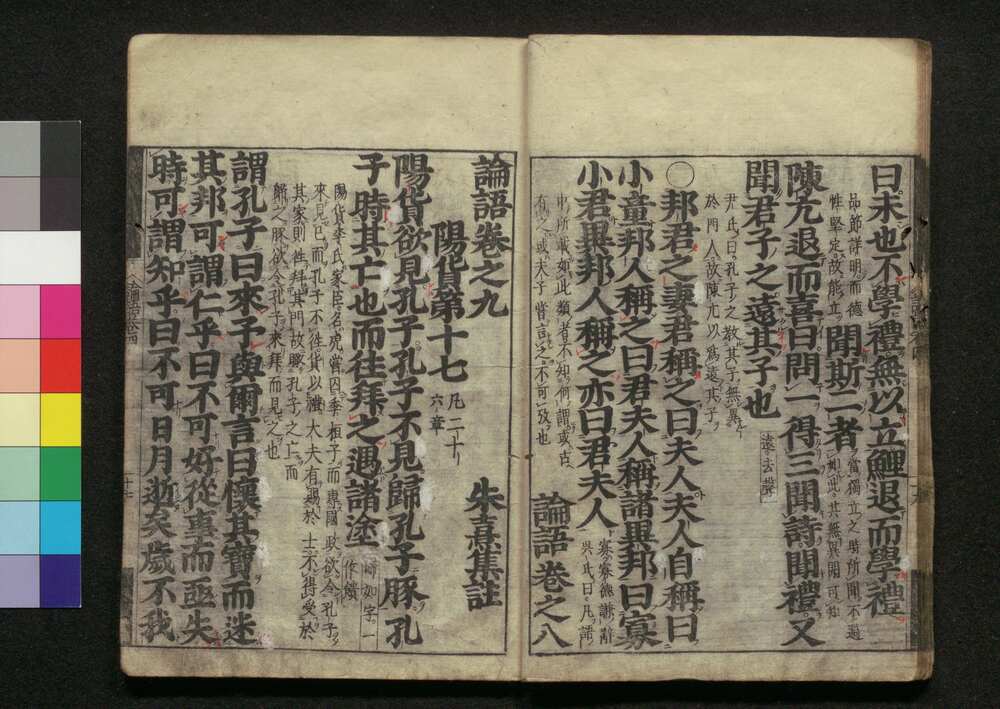 曰未也不學禮無以立鯉退而學禮
品節詳明而德
性堅定故能立
聞斯二者
當獨立之時所聞不過
如此其無異聞可知
陳亢退而喜曰問一得三聞詩聞禮又
聞君子之遠其子也
遠去聲
尹氏曰孔子之教其子無異
於門人故陳亢以爲遠其子
○邦君之妻君稱之曰夫人夫人自稱曰
小童邦人稱之曰君夫人稱諸異邦曰寡
小君異邦人稱之亦曰君夫人
寡寡德謙辭
吳氏曰凡語
中所載如此類者不知何謂或古
有之或夫子嘗言之不可攷也
論語卷之八
論語卷之九
朱熹集註
陽貨第十七
凡二十
六章
陽貨欲見孔子孔子不見歸孔子豚孔
子時其亡也而往拜之遇諸塗
歸如字一
作饋
陽貨季氏家臣名虎嘗囚季桓子而專國政欲令孔子
來見己而孔子不往貨以禮大夫有賜於士不得受於
其家則往拜其門故瞰孔子之亡而
歸之豚欲令孔子來拜而見之也
謂孔子曰來予與爾言曰懷其寶而迷
其邦可謂仁乎曰不可好從事而亟失
時可謂知乎曰不可日月逝矣歲不我